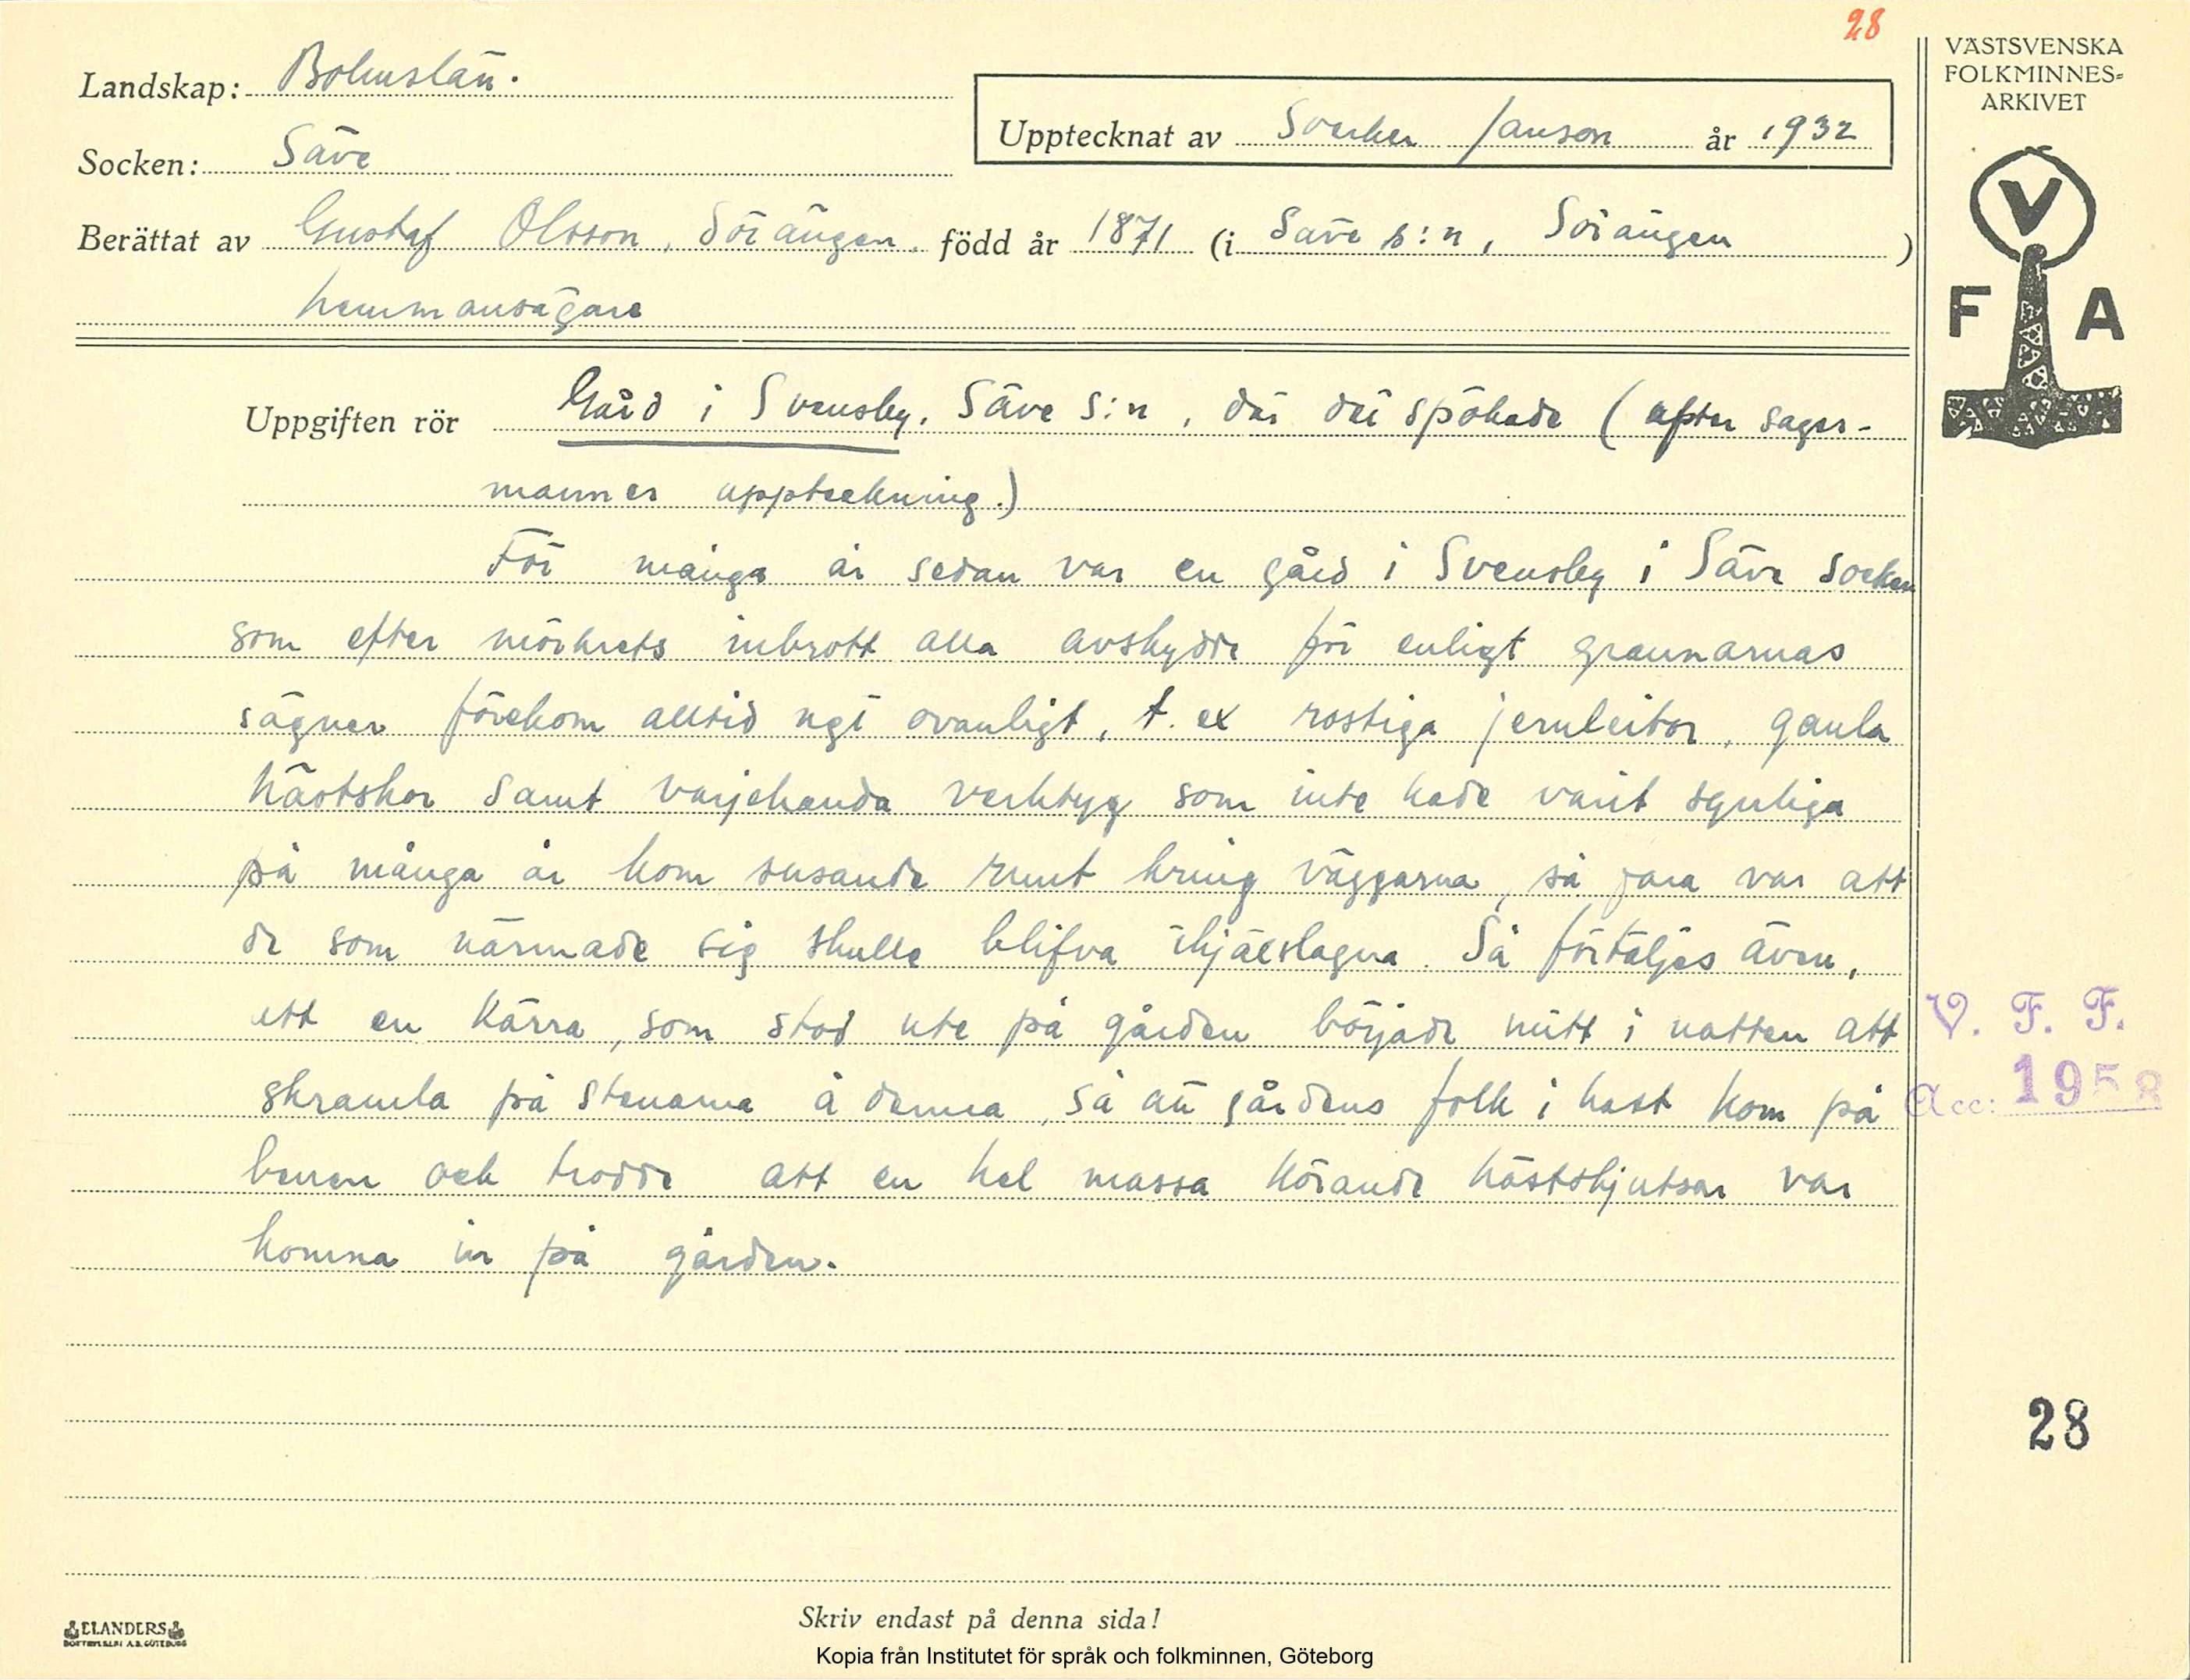 28
VÄSTSVENSKA
FOLKMINNES-
ARKIVET
Landskap: Bohuslän.
Upptecknat av Sverker Janson år 1932
Socken: Säve
Berättat av Gustaf Olsson, Sörängen. född år 1871 (i Säve s:n, Sörängen)
hemmansägare
V
F A
Uppgiften rör Gård i Svensby, Säve s:n, där det spökade (efter sages-
mannes uppteckning.)
För många år sedan var en gård i Svensby i Säve socken
som efter mörkrets inbrott alla avskydde för enligt grannarnas
sägner förekom alltid ngt ovanligt, t. ex rostiga jernbitor, gamla
hästskor samt varjehanda verktyg som inte hade varit synliga
på många år kom susande runt kring väggarna, så fara var att
de som närmade sig skulle blifva ihjälslagna. Så förtäljes även,
att en kärra, som stod ute på gården började mitt i natten att
skramla på stenarna å denna, så att gårdens folk i hast kom på
benen och trodde att en hel massa körande hästskjutsar var
komna in på gården.
V. F. F.
Acc: 1958
28
ELANDERS
BOKTRYCKERI A.B. GÖTEBORG
Skriv endast på denna sida!
Kopia från Institutet för språk och folkminnen, Göteborg